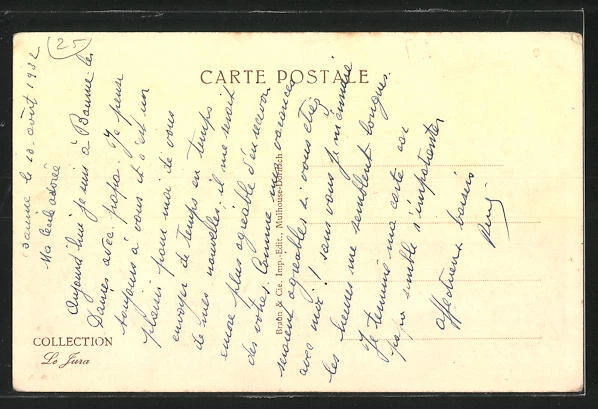 25
CARTE POSTALE
Baume le 10 août 1932
Ma Leile adorée
Aujourd'hui je suis à Baume-les
Dames avec papa. Je pense
toujours à vous et c'est un
plaisir pour moi de vous
envoyer de temps en temps
de mes nouvelles, il me serait
encore plus agréable d'en recevoir
des vôtres. Comme mes vacances
seraient agréables si vous étiez
avec moi! sans vous je m'ennuie
les heures me semblent longues.
Je termine ma carte car
papa semble s'impatienter
Affectueux baisers
Braun & Cie, Imp.-Edit., Mulhouse-Dornach
COLLECTION
Le Jura